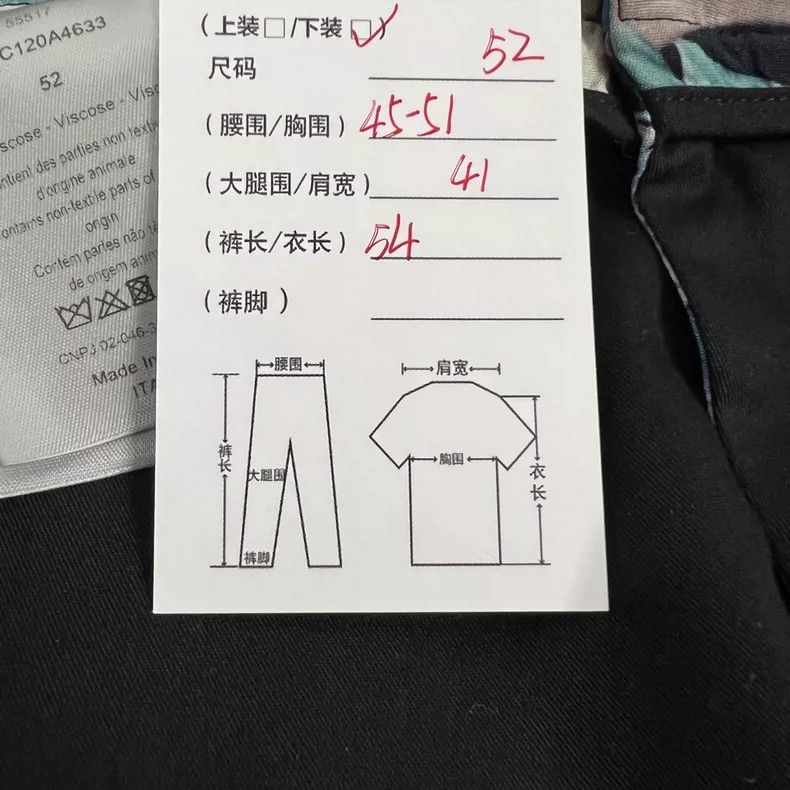 C120A4633
52
Viscose - Viscose
d'origine animale
contains non-textile parts of
origin
de origem
CNPJ 02-046-3
Made in
ITA
(上装□/下装□)
尺码 52
(腰围/胸围) 45-51
(大腿围/肩宽) 41
(裤长/衣长) 54
(裤脚)
腰围
裤长
大腿围
裤脚
肩宽
胸围
衣长